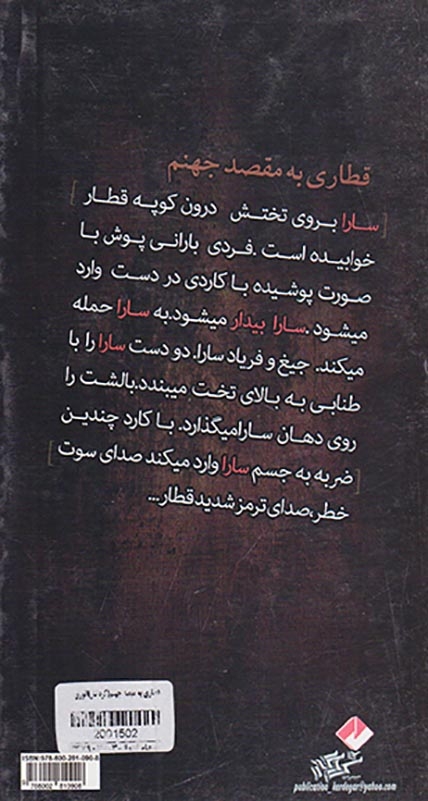 قطاری به مقصد جهنم
[سارا بروی تختش درون کوپه قطار]
خوابیده است .فردی بارانی پوش با
صورت پوشیده با کاردی در دست وارد
میشود.سارا بیدار میشود.به سارا حمله
میکند. جیغ و فریاد سارا. دو دست سارا را با
طنابی به بالای تخت میبندد.بالشت را
روی دهان سارامیگذارد. با کارد چندین
[ضربه به جسم سارا وارد میکند صدای سوت]
خطر،صدای ترمز شدید قطار...
2001502
publication_kardegar@yahoo.com